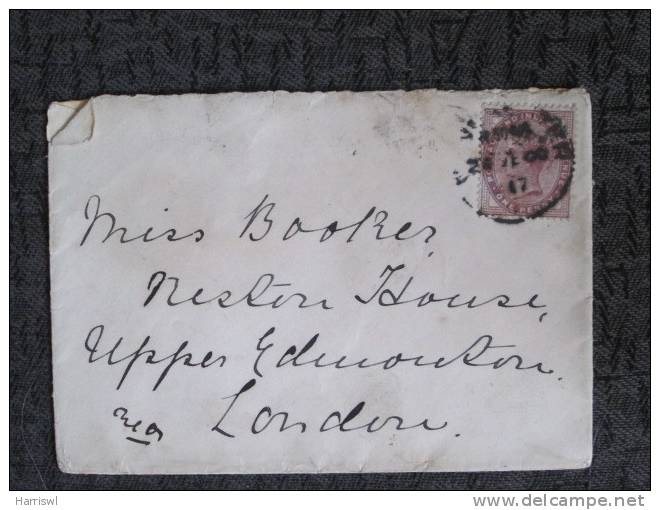 Miss Booker,
Neston House,
Upper Edmonton.
London.
ONE PENNY
17
Harriswl
www.delcampe.net